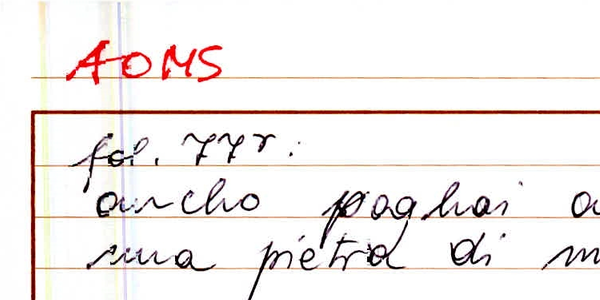 AOMS
fol. 77r:
ancho paghai a
una pietra di m